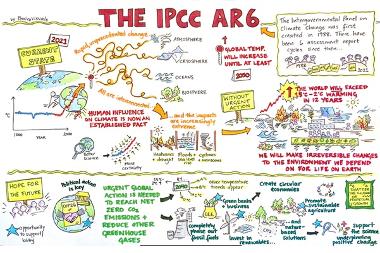 THE IPCC AR6
The Intergovernmental Panel on
Climate Change was first
created in 1988. There have
been 6 assessment report
cycles since then.
2021
CURRENT
STATE
Rapid, unprecedented change
ATMOSPHERE
CRYOSPHERE
OCEANS
BIOSPHERE
All are interconnected
GLOBAL TEMP.
WILL INCREASE
UNTIL AT LEAST
2050
WITHOUT
URGENT
ACTION
THE WORLD WILL EXCEED
1.5°C - 2°C WARMING
IN 12 YEARS
HUMAN INFLUENCE
ON CLIMATE IS NOW AN
ESTABLISHED FACT
1000
2000
YEAR
...and the impacts
are increasingly
extreme
science
more
certainty
Heatwaves
& droughts
Floods +
sea level
rise
cyclones
WE WILL MAKE IRREVERSIBLE CHANGES
TO THE ENVIRONMENT WE DEPEND
ON FOR LIFE ON EARTH
HOPE FOR
THE FUTURE
Political action
is key
opportunity
to support
today
URGENT GLOBAL
ACTION IS NEEDED
TO REACH NET
ZERO CO₂
EMISSIONS +
REDUCE OTHER
GREENHOUSE
GASES
2040
Green banks +
business
completely
phase out
fossil fuels
invest in
renewables...
Create circular economies
Promote
sustainable
agriculture
...and
nature-
based
solutions
support
the science
underpinning
positive change